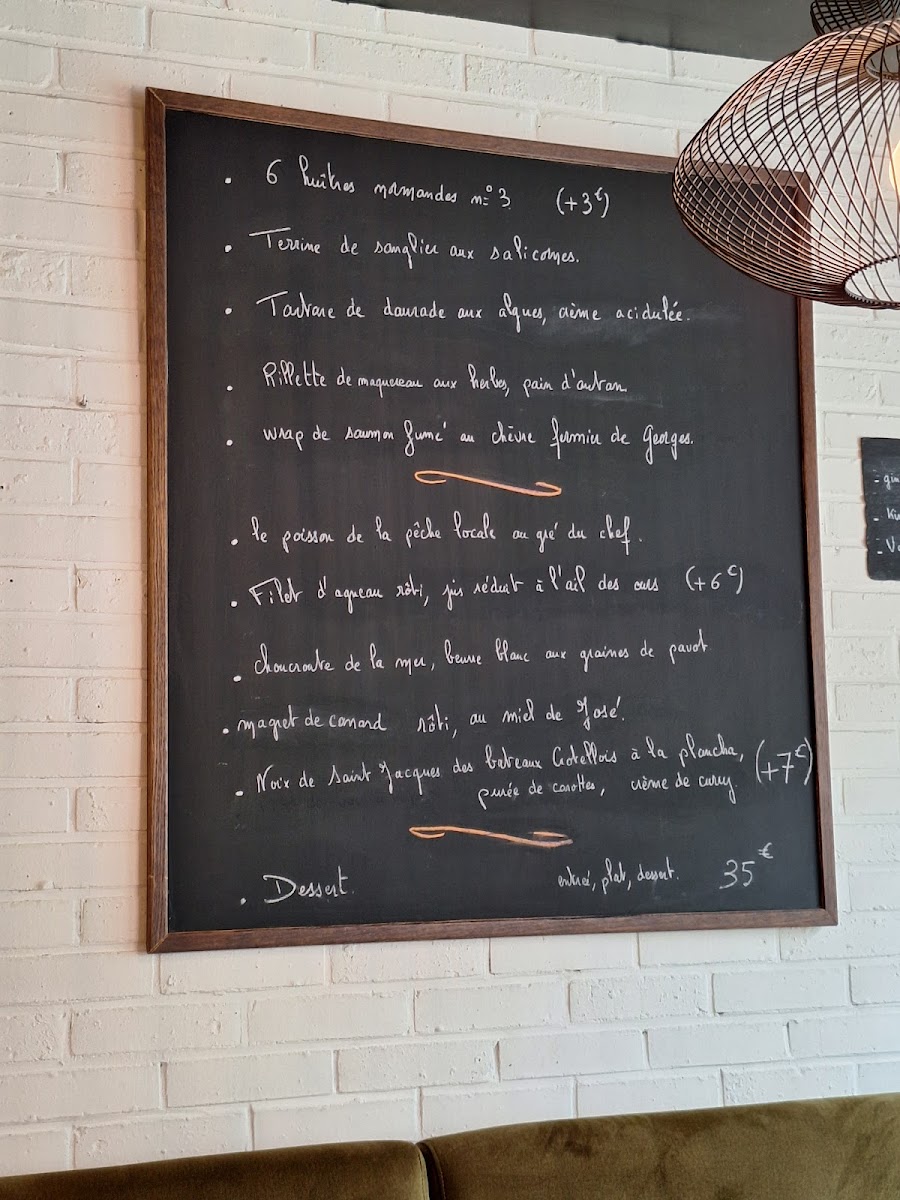 . 6 huîtres normandes n° 3 (+3€)
. Terrine de sanglier aux salicornes.
. Tartare de daurade aux algues, crème acidulée.
. Rillette de maquereau aux herbes, pain d'antan
. wrap de saumon fumé au chèvre fermier de Georges.
. le poisson de la pêche locale au gré du chef.
. Filet d'agneau rôti, jus réduit à l'ail des ours (+6€)
. choucroute de la mer, beurre blanc aux graines de pavot
. magret de canard rôti, au miel de José.
. Noix de Saint Jacques des bateaux Crotellois à la plancha, (+7€)
purée de carottes, crème de curry.
. Dessert. entrée, plat, dessert. 35€